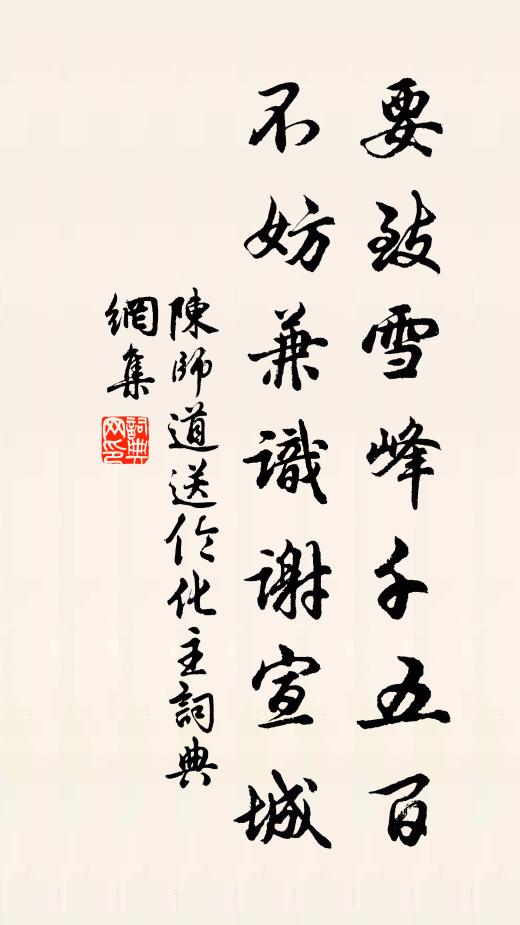 要致雪峰千五百
不妨兼識謝宣城
陳師道送伱化主詞典
網集
詞典网印